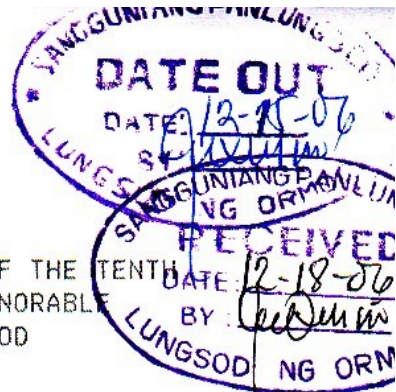 SANGGUNIANG PANLUNGSOD
DATE OUT
DATE: 12-15-06
BY
LUNGSOD NG ORMOC
SANGGUNIANG PANLUN
RECEIVED
DATE: 12-18-06
BY:
LUNGSOD NG ORM
F THE TENTH
NORABLE
OD